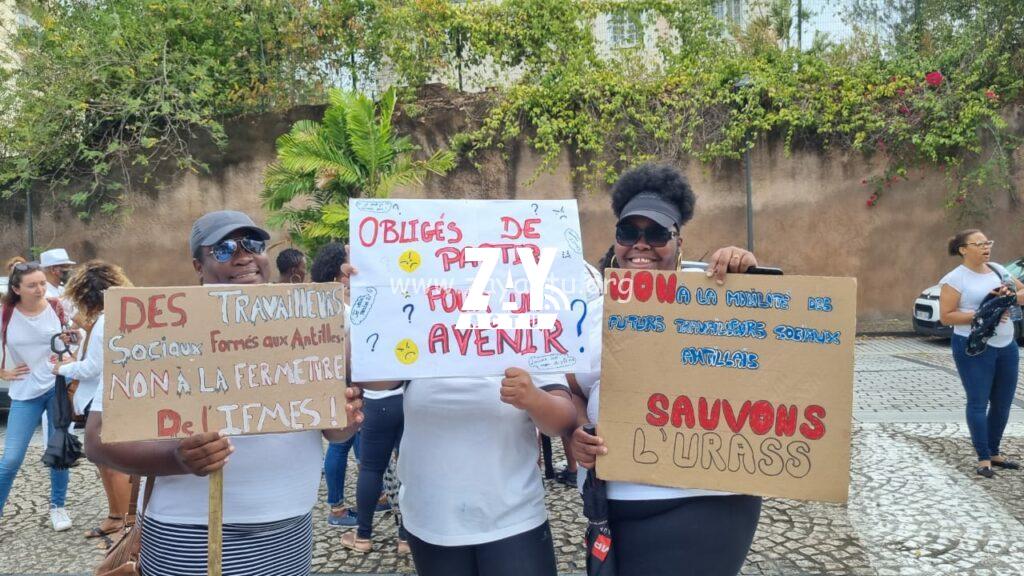 DES TRAVAILLEURS
Sociaux Formés aux Antilles.
NON À LA FERMETURE
De l'IFMES !
OBLIGÉS DE
PARTIR
POUR UN
AVENIR
?
NON À LA MOBILITÉ DES
FUTURS TRAVAILLEURS SOCIAUX
ANTILLAIS
SAUVONS
L'URASS
ZAY
ACTU
www.zayactu.org